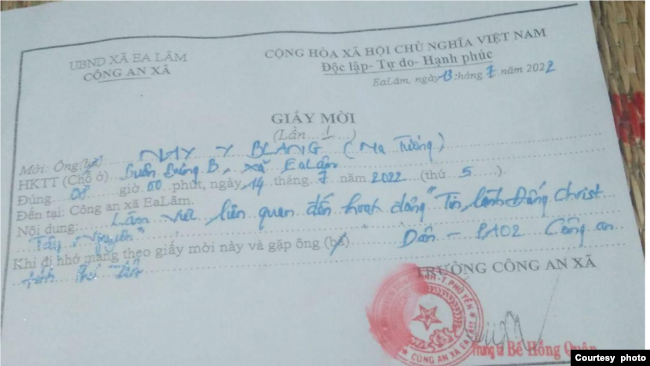 UBND XÃ EA LÂM
CÔNG AN XÃ
CỘNG HÒA XÃ HỘI CHỦ NGHĨA VIỆT NAM
Độc lập- Tự do- Hạnh phúc
EaLâm, ngày 13 tháng 7 năm 2022
GIẤY MỜI
(Lần 1)
Mời: Ông(bà) NAY Y BLANG (Ma Tương)
HKTT (Chỗ ở) Buôn Bưng B, xã EaLâm
Đúng 08 giờ 00 phút, ngày 14 tháng 7 năm 2022 (thứ 5)
Đến tại: Công an xã EaLâm.
Nội dung: Làm việc liên quan đến hoạt động "Tin lành Đấng Christ
Tây Nguyên"
Khi đi nhớ mang theo giấy mời này và gặp ông (bà) Dân - PA02 Công an
tỉnh Phú Yên
TRƯỞNG CÔNG AN XÃ
CÔNG AN XÃ EA
Trung tá Bế Hồng Quân
Courtesy photo